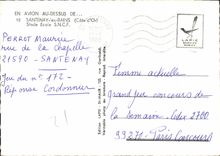 EN AVION AU-DESSUS DE...
SANTENAY-les-BAINS (Côte-d'Or)
Stade Ecole S.N.C.F.
LAPIE
PERROT Maurice
rue de la chapelle
21590 - SANTENAY
Jeu du n° 172 -
Réponse Cordonnier
21
Femme actuelle
grand jeu concours de
la semaine - Cedex 2700
99270 - Paris Concours